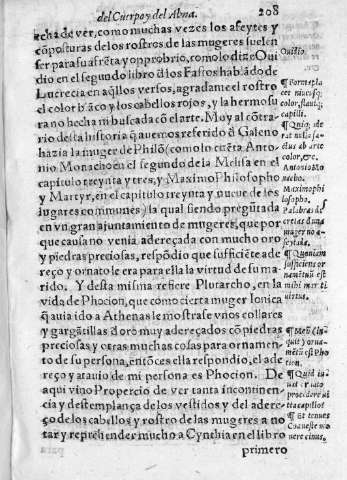 del Cuerpo y del Alma.
208
echa de ver, como muchas vezes los afeytes y
cõposturas de los rostros de las mugeres suelen
ser para su afrẽta y opprobrio, como lo dize Oui
dio en el segundo libro đ los Fastos hablãdo de
Lucrecia en aq̃llos versos, agradame el rostro
el color blãco y los cabellos rojos, y la hermosu
ra no hecha ni buscada cõ el arte. Muy al cõtra-
rio desta historia q̃ auemos referido đ Galeno
hazia la muger de Philõ (como lo cuẽta Anto-
nio Monacho en el segundo de la Melisa en el
capitulo treynta y tres, y Maximo Philosopho
y Martyr, en el capitulo treynta y nueue de los
lugares communes) la qual siendo pregũtada
en vn gran ajuntamiento de mugeres, que por
que causa no venia adereçada con mucho oro
y piedras preciosas, respõdio que sufficiẽte ade
reço y ornato le era para ella la virtud de su ma-
rido. Y desta misma refiere Plutarcho, en la
vida de Phocion, que como cierta muger Ionica
q̃ auia ido a Athenas le mostrase vños collares
y gargãtillas đ oro muy adereçados cõ piedras
preciosas y otras muchas cosas para ornamen
to de su persona, entõces ella respondio, el ade
reço y atauio de mi persona es Phocion. De
aqui vino Propercio de ver tanta incontinen-
cia y destemplança de los vestidos y del adere-
ço de los cabellos y rostro de las mugeres a no
tar y reprehender mucho a Cynthia en el libro
primero
Ouidio.
¶ Forma pla
cet niueusq;
color, flauiq;
capilli.
Antonio Mo
nacho.
Maximo phi
losopho.
Palabras de
¶ Quoniam
sufficiens or
virtus.